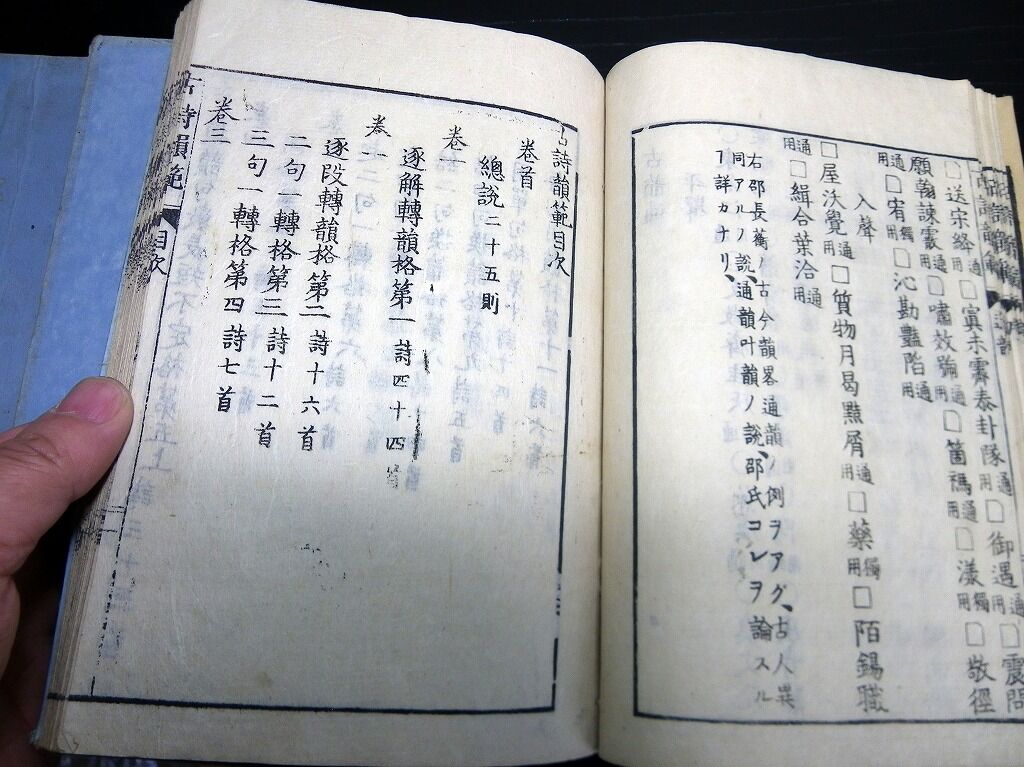 □送宋絳通用□寘未霽泰卦隊通用□御遇通用□震問
願翰諫霰通用□嘯效號通用□箇禡通用□漾獨用□敬徑
通用□宥獨用□沁勘豔陷通用
入聲
□屋沃覺通用□質物月曷黠屑通用□藥獨用□陌錫職
通用□緝合葉洽通用
右邵長蘅ノ古今韻畧通韻ノ例ヲアグ、古人異
同アルノ說、通韻叶韻ノ說、邵氏コレヲ論スル
ヿ詳カナリ
古詩韻範目次
卷首
總說二十五則
卷一
逐解轉韻格第一詩四十四首
卷二
逐段轉韻格第二詩十六首
二句一轉格第三詩十二首
三句一轉格第四詩七首
卷三
古詩韻範 目次